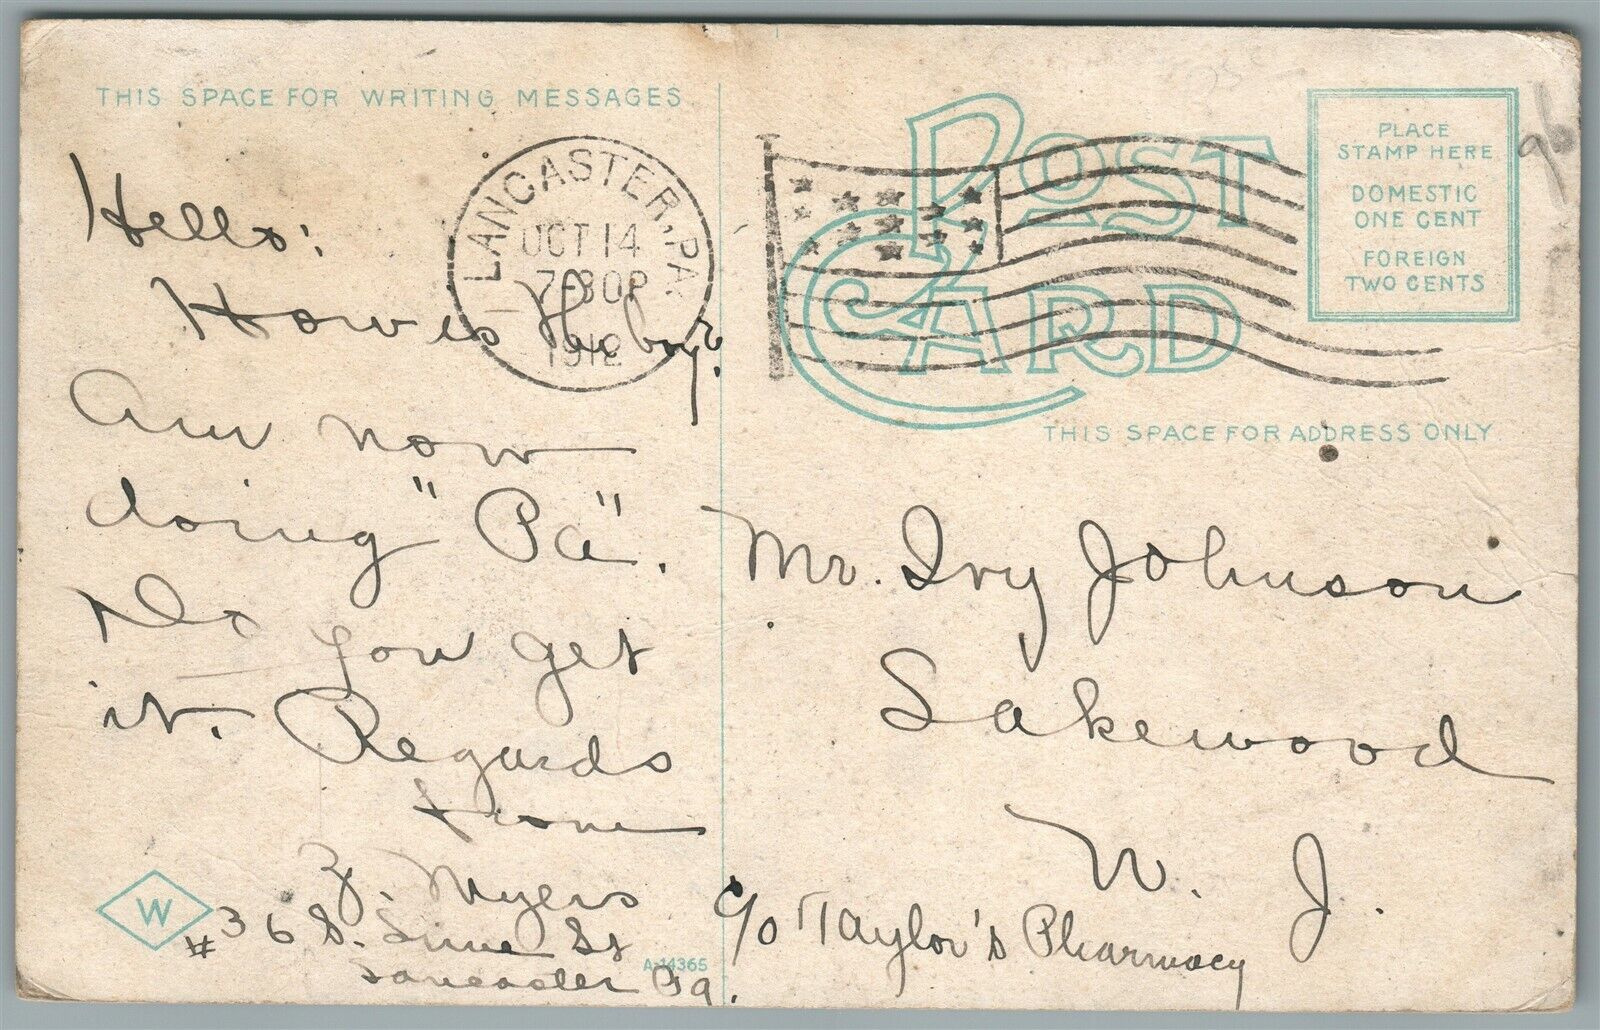 THIS SPACE FOR WRITING MESSAGES
LANCASTER, PA.
OCT 14
7-30P
1912
Hello:
How is the boy?
Am now
doing "Pa".
Do you get
it. Regards
from
Z. Myers
#36 S. Lime St
Lancaster Pa.
W
A-14365
POST CARD
PLACE
STAMP HERE
DOMESTIC
ONE CENT
FOREIGN
TWO CENTS
THIS SPACE FOR ADDRESS ONLY.
Mr. Ivy Johnson
Lakewood
N. J.
c/o Taylor's Pharmacy